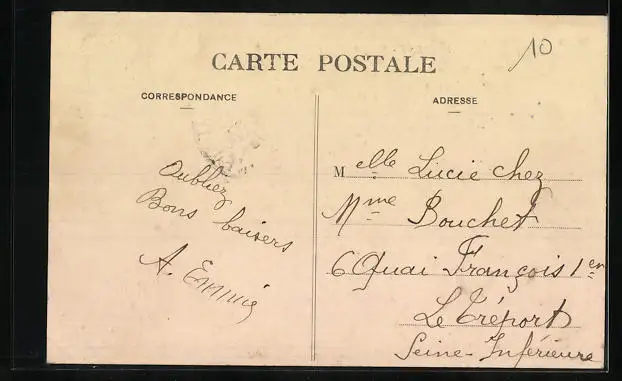 10
CARTE POSTALE
CORRESPONDANCE
Oubliez
Bons baisers
A. Emmie
ADRESSE
Melle Lucie chez
Mme Bouchet
6 Quai François 1er
Le Tréport
Seine-Inférieure